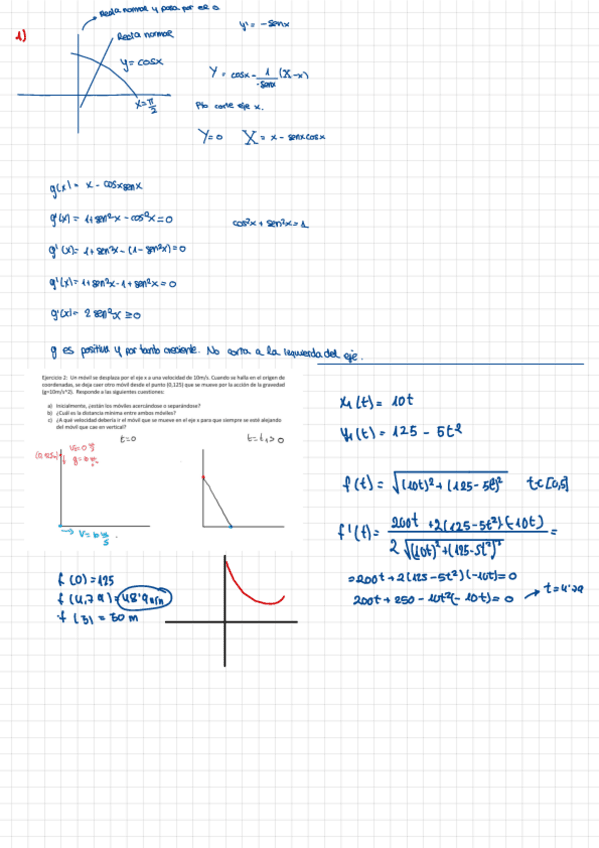 Recta normal y pasa por eje 0
1)
Recta normal
y = cosx
x = π/2
y' = -senx
Y = cosx - 1/-senx (X-x)
Pto corte eje x.
Y=0 X = x - senxcosx
g(x) = x - cosxsenx
g'(x) = 1+sen²x - cos²x = 0
cos²x + sen²x = 1
g'(x) = 1+sen²x - (1 - sen²x) = 0
g'(x) = 1+sen²x - 1 + sen²x = 0
g'(x) = 2 sen²x ≥ 0
g es positiva y por tanto creciente. No corta a la izquierda del eje.
Ejercicio 2: Un móvil se desplaza por el eje x a una velocidad de 10m/s. Cuando se halla en el origen de
coordenadas, se deja caer otro móvil desde el punto (0,125) que se mueve por la acción de la gravedad
(g=10m/s^2). Responde a las siguientes cuestiones:
a) Inicialmente, ¿están los móviles acercándose o separándose?
b) ¿Cuál es la distancia mínima entre ambos móviles?
c) ¿A qué velocidad debería ir el móvil que se mueve en el eje x para que siempre se esté alejando
del móvil que cae en vertical?
t=0
t=t₁>0
x₁(t) = 10t
y₁(t) = 125 - 5t²
f(t) = √(10t)² + (125 - 5t²)² t ∈ [0,5]
f'(t) = 200t + 2(125 - 5t²)(-10t) / 2√(10t)² + (125-5t²)² =
= 200t + 2(125 - 5t²)(-10t) = 0
200t + 250 - 10t²(-10t) = 0 → t = 4'79
f(0) = 125
f(4,79) = 48'9 m
f(5) = 50 m